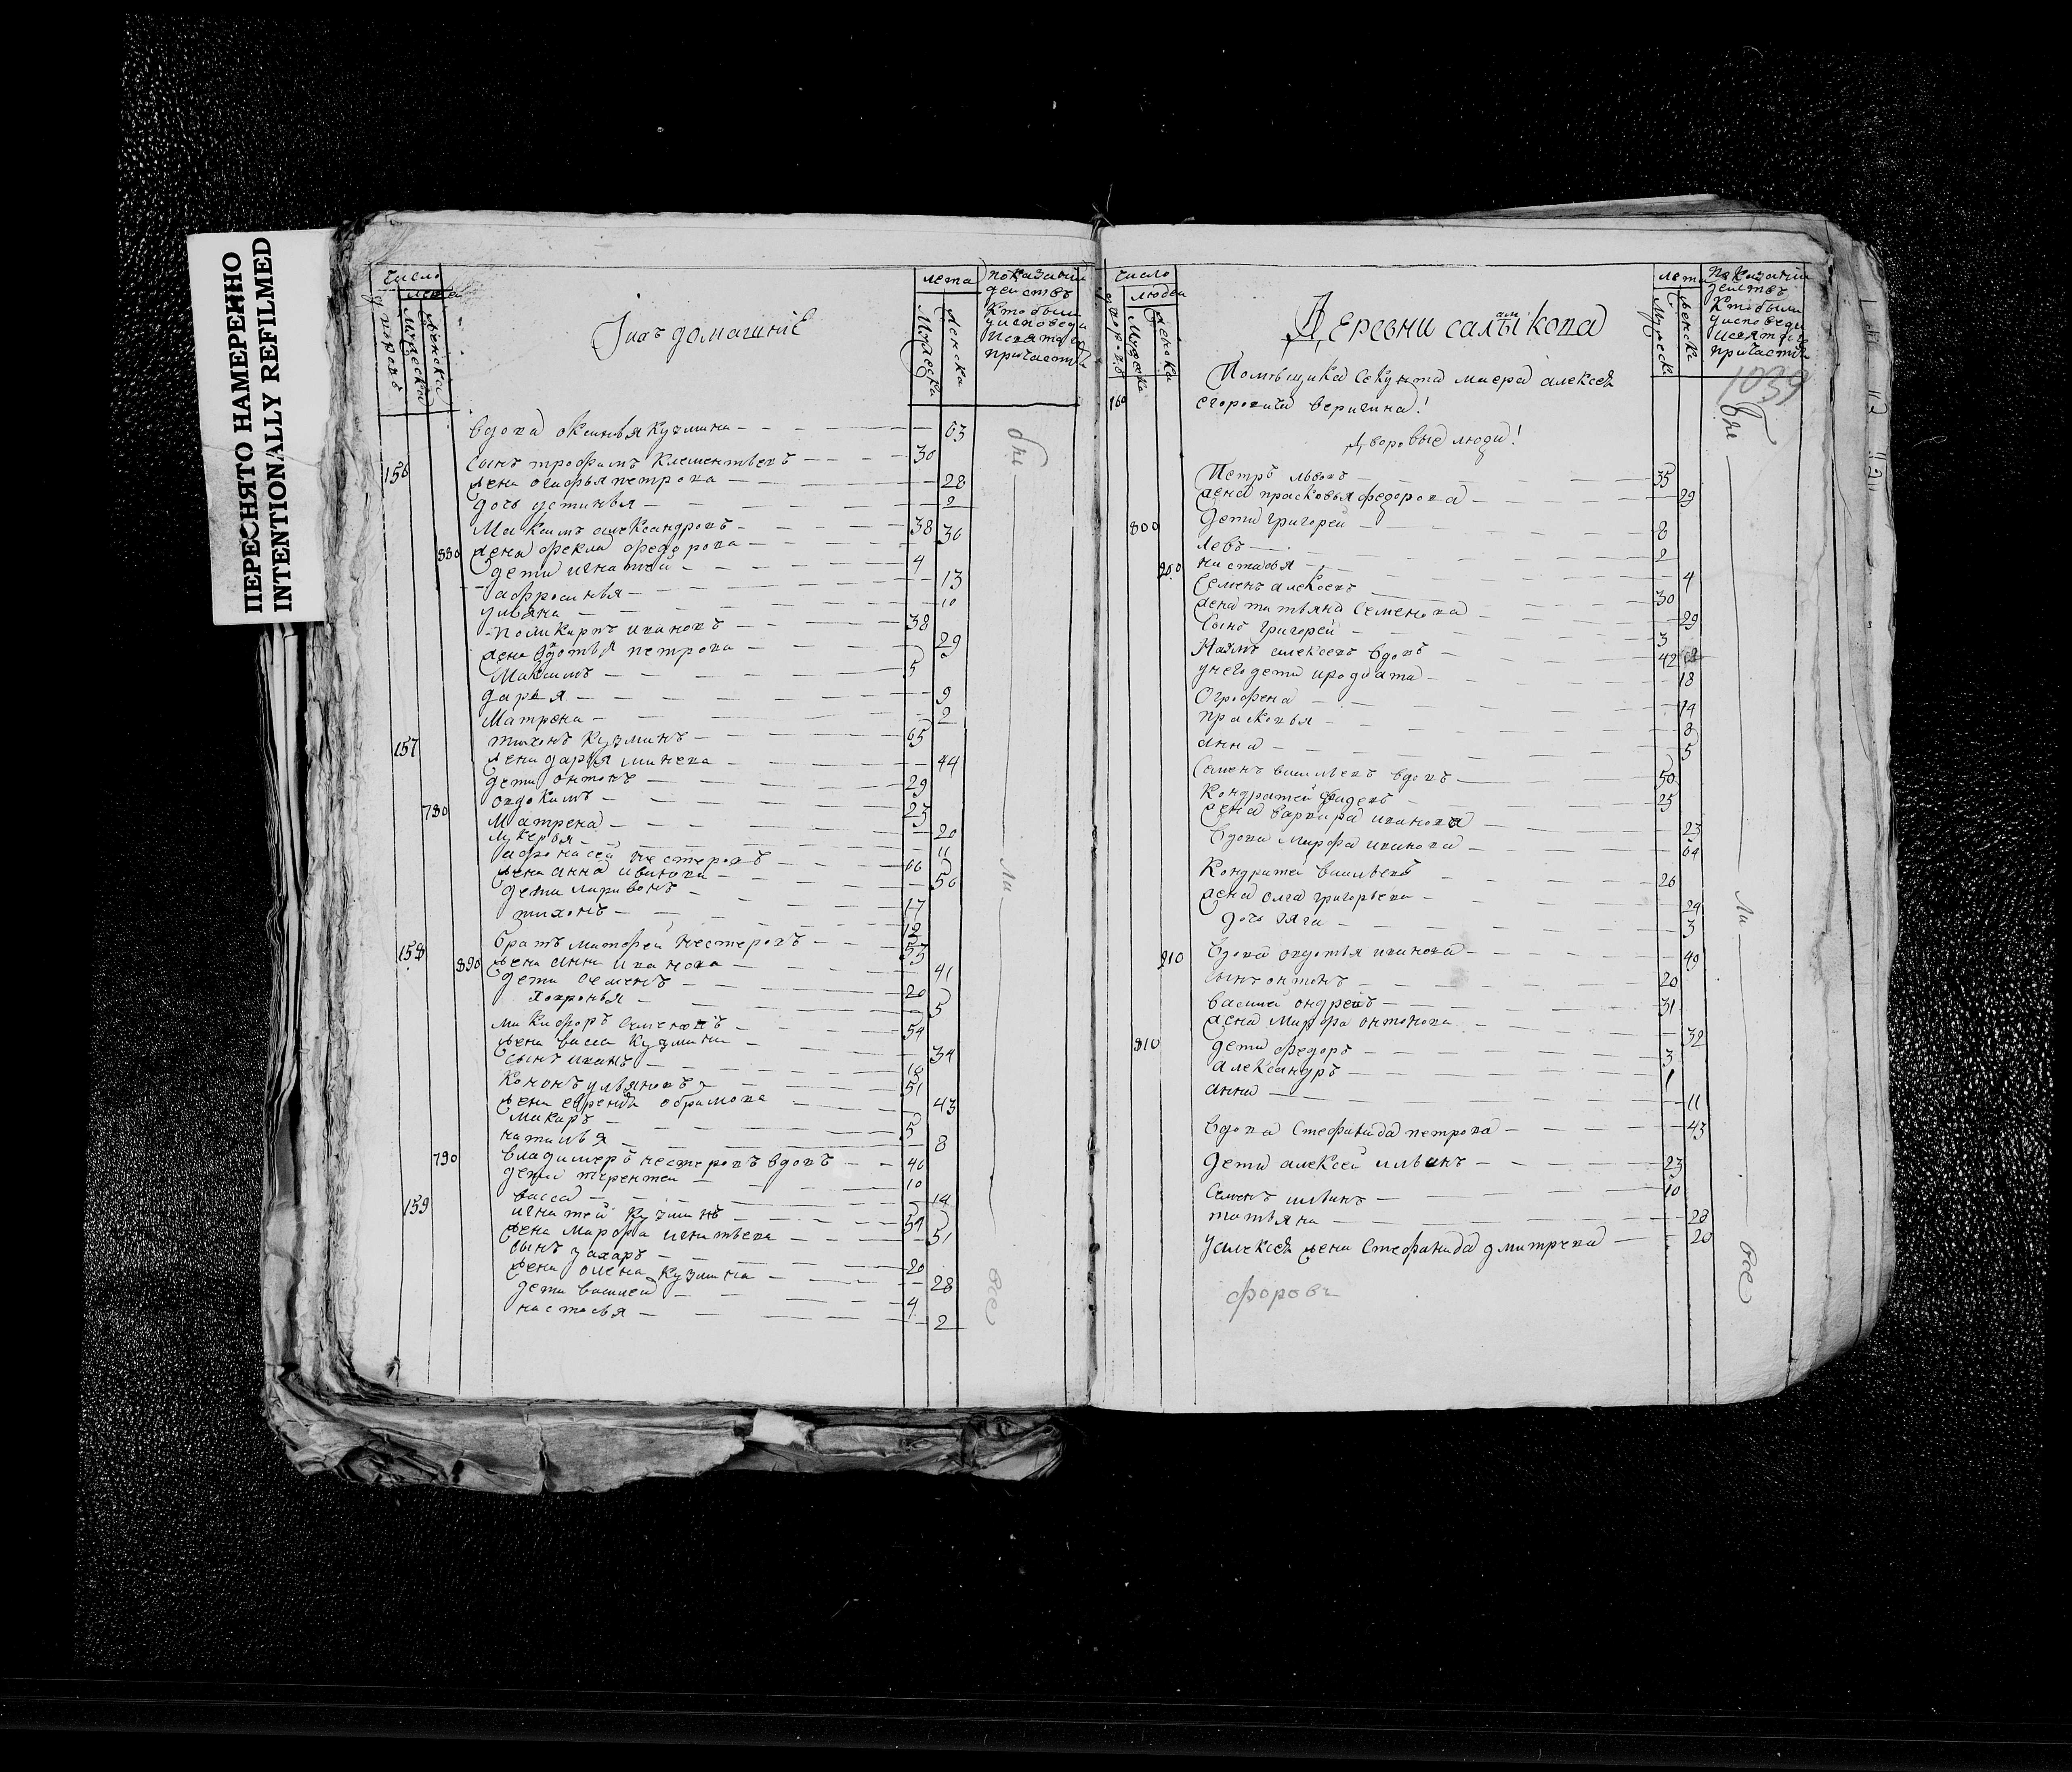 ПЕРЕСНЯТО НАМЕРЕННО
INTENTIONALLY REFILMED
число
людей
дворовъ
Мужеска
женска
И ихъ домашние
лета
Мужеска
женска
показании
действ
Кто были
у исповеди
и святаго
причастия
вдова оксинья кузмина 63
156 сынъ трофимъ клементьевъ 30
жена огафья петрова 28
дочь устинья 2
Максимъ александровъ 38
880 жена фекла федорова 36
дети игнатей 4
афросинья 13
ульяна 10
поликарпъ ивановъ 38
жена вдотья петрова 29
Максимъ 5
дарья 9
Матрена 2
157 тихонъ кузминъ 65
жена дарья минева 44
дети онтонъ 29
780 овдокимъ 23
Матрена 20
лукерья 11
афонасей нестеровъ 66
жена анна иванова 56
дети ларивонъ 17
тихонъ 12
158 братъ матфей нестеровъ 53
890 жена анна иванова 41
дети семенъ 20
ховронья 5
никифоръ семеновъ 54
жена васса кузмина 34
сынъ иванъ 16
кононъ ульяновъ 51
жена обрамова 43
макаръ 5
наталья 8
790 владимеръ нестеровъ вдовъ 40
дети терентей 10
васса 14
159 игнатей кузминъ 54
жена марфа игнатьева 51
сынъ захаръ 20
жена олена кузмина 28
дети василей 4
настасья 2
бы
ли
все
число
людей
дворовъ
Мужеска
женска
Деревни салтыкова
лета
Мужеска
женска
показании
действ
Кто были
у исповеди
и святаго
причастия
1039
160 Помещика секунта маера алексея
егоровича веригина!
дворовые люди!
Петръ львовъ 35
жена прасковья федорова 29
800 дети григорей 8
левъ 2
900 настасья 4
семенъ алексеевъ 30
жена татьяна семенова 29
сынъ григорей 3
Наумъ алексеевъ вдовъ 42
у него дети иродиата 18
Огрофена 14
прасковья 8
анна 5
семенъ васильевъ вдовъ 50
кондратей фадеевъ 25
жена варвара иванова 23
вдова марфа иванова 64
кондратей васильевъ 26
жена олга григорьева 24
дочь 3
910 вдова овдотья иванова 49
сынъ онтонъ 20
василей ондреевъ 31
жена марфа онтонова 32
810 дети федоръ 3
александръ 1
анна 11
вдова стефанида петрова 43
дети алексей ильинъ 23
семенъ ильинъ 10
татьяна 28
у алексея жена стефанида дмитрева 20
бы
ли
все